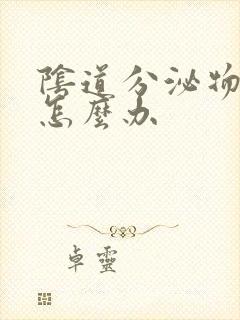 陰道分泌物
怎麼办
卓靈